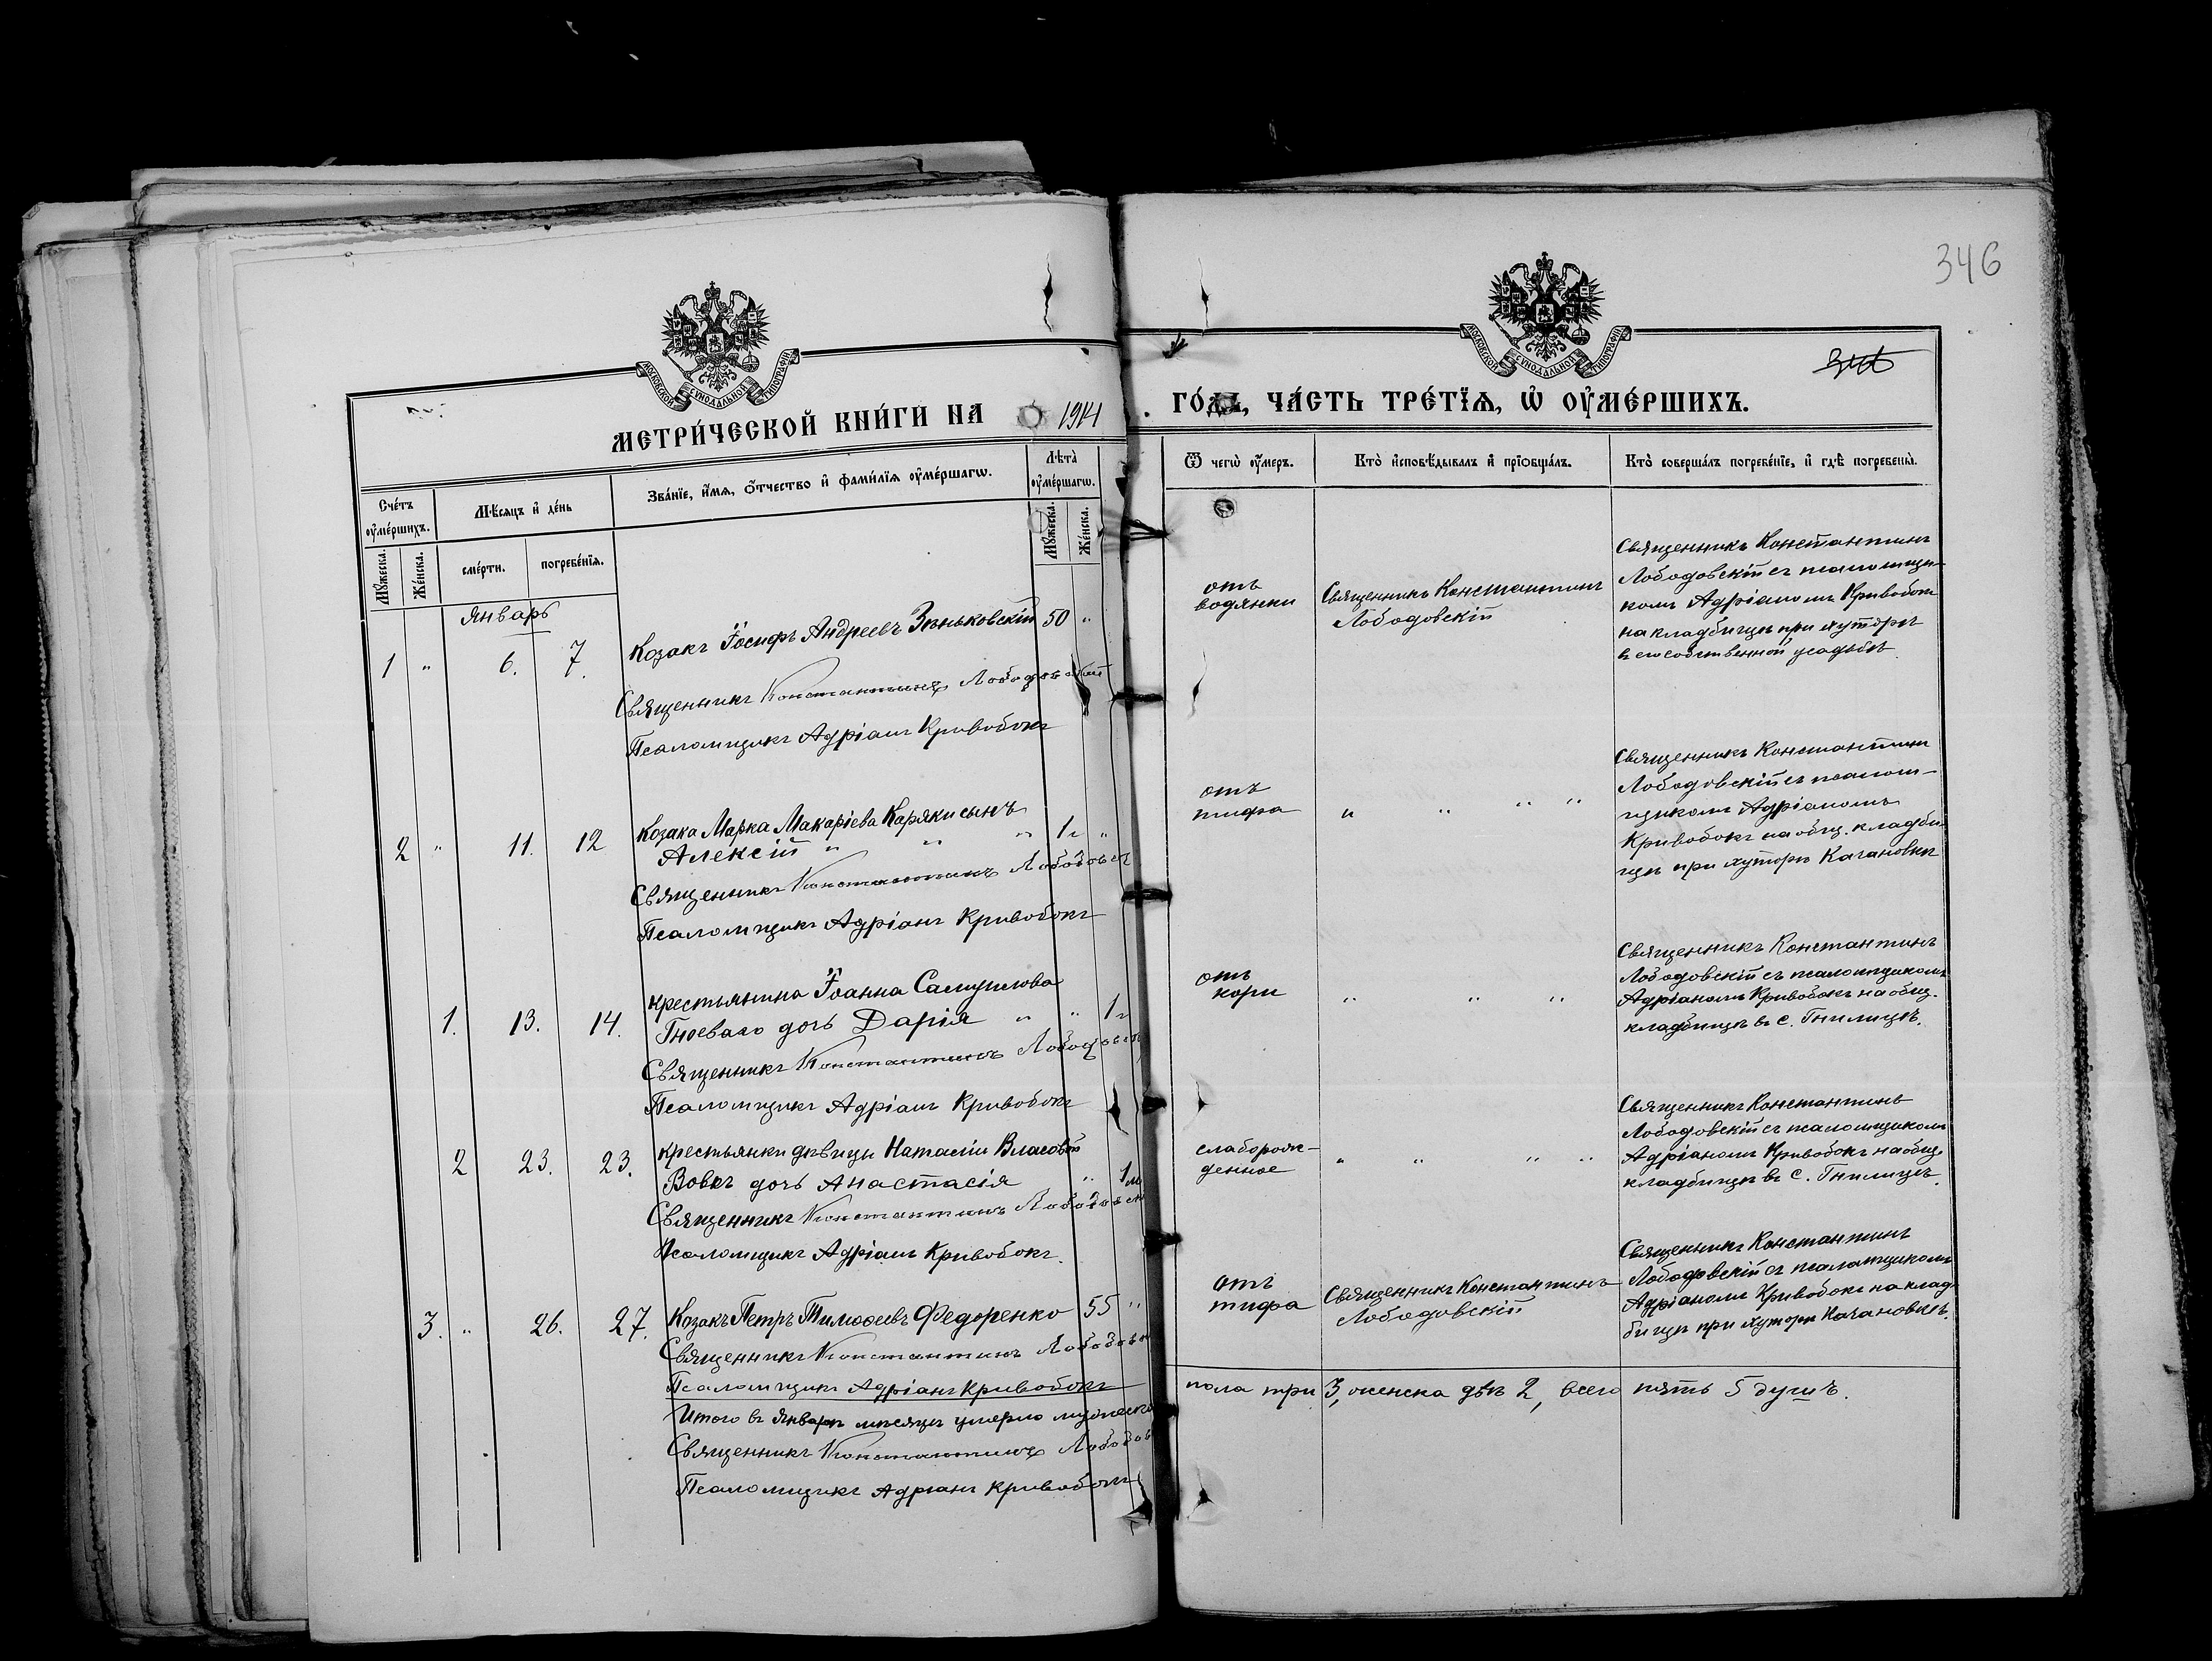 346
МОСКОВСКОЙ СѴНОДАЛЬНОЙ ТИПОГРАФІИ
МОСКОВСКОЙ СѴНОДАЛЬНОЙ ТИПОГРАФІИ
346
МЕТРИ́ЧЕСКОЙ КНИ́ГИ НА 1914 ГО́ДЪ, ЧА́СТЬ ТРЕ́ТІѦ, Ѡ҆ ОУ҆МЕ́РШИХЪ.
Сче́тъ оу҆ме́ршихъ.
Мѣ́сяцъ и҆ де́нь
Зва́нїе, и҆́мѧ, ѻ҆́тчество и҆ фами́лїѧ оу҆ме́ршагѡ.
Лѣта̀ оу҆ме́ршагѡ.
Ѿ чегѡ̀ оу҆́меръ.
Кто̀ и҆сповѣ́дывалъ и҆ прїѡбща́лъ.
Кто̀ соверша́лъ погребе́нїе, и҆ гдѣ̀ погребены̀.
Мꙋ́жеска.
Же́нска.
сме́рти.
погребе́нїѧ.
Мꙋ́жеска.
Же́нска.
Январь
1 " 6. 7. Козакъ Іосифъ Андреевъ Зѣньковскій 50 "
Священникъ Константинъ Лободовскій
Псаломщикъ Адріанъ Кривобокъ
отъ
водянки
Священникъ Константинъ
Лободовскій
Священникъ Константинъ
Лободовскій съ псаломщи-
комъ Адріаномъ Кривобокъ
на кладбищѣ при хуторѣ
в его собственной усадьбѣ.
2 " 11. 12 Козака Марка Макаріева Каряки сынъ
Алексій " " " 1 "
Священникъ Константинъ Лободовск
Псаломщикъ Адріанъ Кривобокъ
отъ
тифа
" " " "
Священникъ Константинъ
Лободовскій съ псалом-
щикомъ Адріаномъ
Кривобокъ на общ. кладби-
щѣ при хуторѣ Качановкѣ
1. 13. 14. крестьянина Іоанна Самуилова
Гноеваго дочь Дарія " " 1
Священникъ Константинъ Лободовск
Псаломщикъ Адріанъ Кривобокъ
отъ
кори
" " "
Священникъ Константинъ
Лободовскій съ псаломщикомъ
Адріаномъ Кривобокъ на общ.
кладбищѣ в с. Гнилицѣ.
2 23. 23. крестьянки дѣвицы Наталіи Власовой
Вовкъ дочь Анастасія " 1м
Священникъ Константинъ Лободовск
Псаломщикъ Адріанъ Кривобокъ.
слаборож-
денное
" " " "
Священникъ Константинъ
Лободовскій съ псаломщикомъ
Адріаномъ Кривобокъ на общ.
кладбищѣ въ с. Гнилицѣ.
3. " 26. 27. Козакъ Петръ Тимоѳеевъ Федоренко 55 "
Священникъ Константинъ Лободовск
Псаломщикъ Адріанъ Кривобокъ
отъ
тифа
Священникъ Константинъ
Лободовскій
Священникъ Константинъ
Лободовскій съ псаломщикомъ
Адріаномъ Кривобокъ на клад-
бищѣ при хуторѣ Качановкѣ.
Итого въ Январѣ мѣсяцѣ умерло мужеска пола три 3, женска двѣ 2, всего пять 5 душъ.
Священникъ Константинъ Лободов
Псаломщикъ Адріанъ Кривобокъ